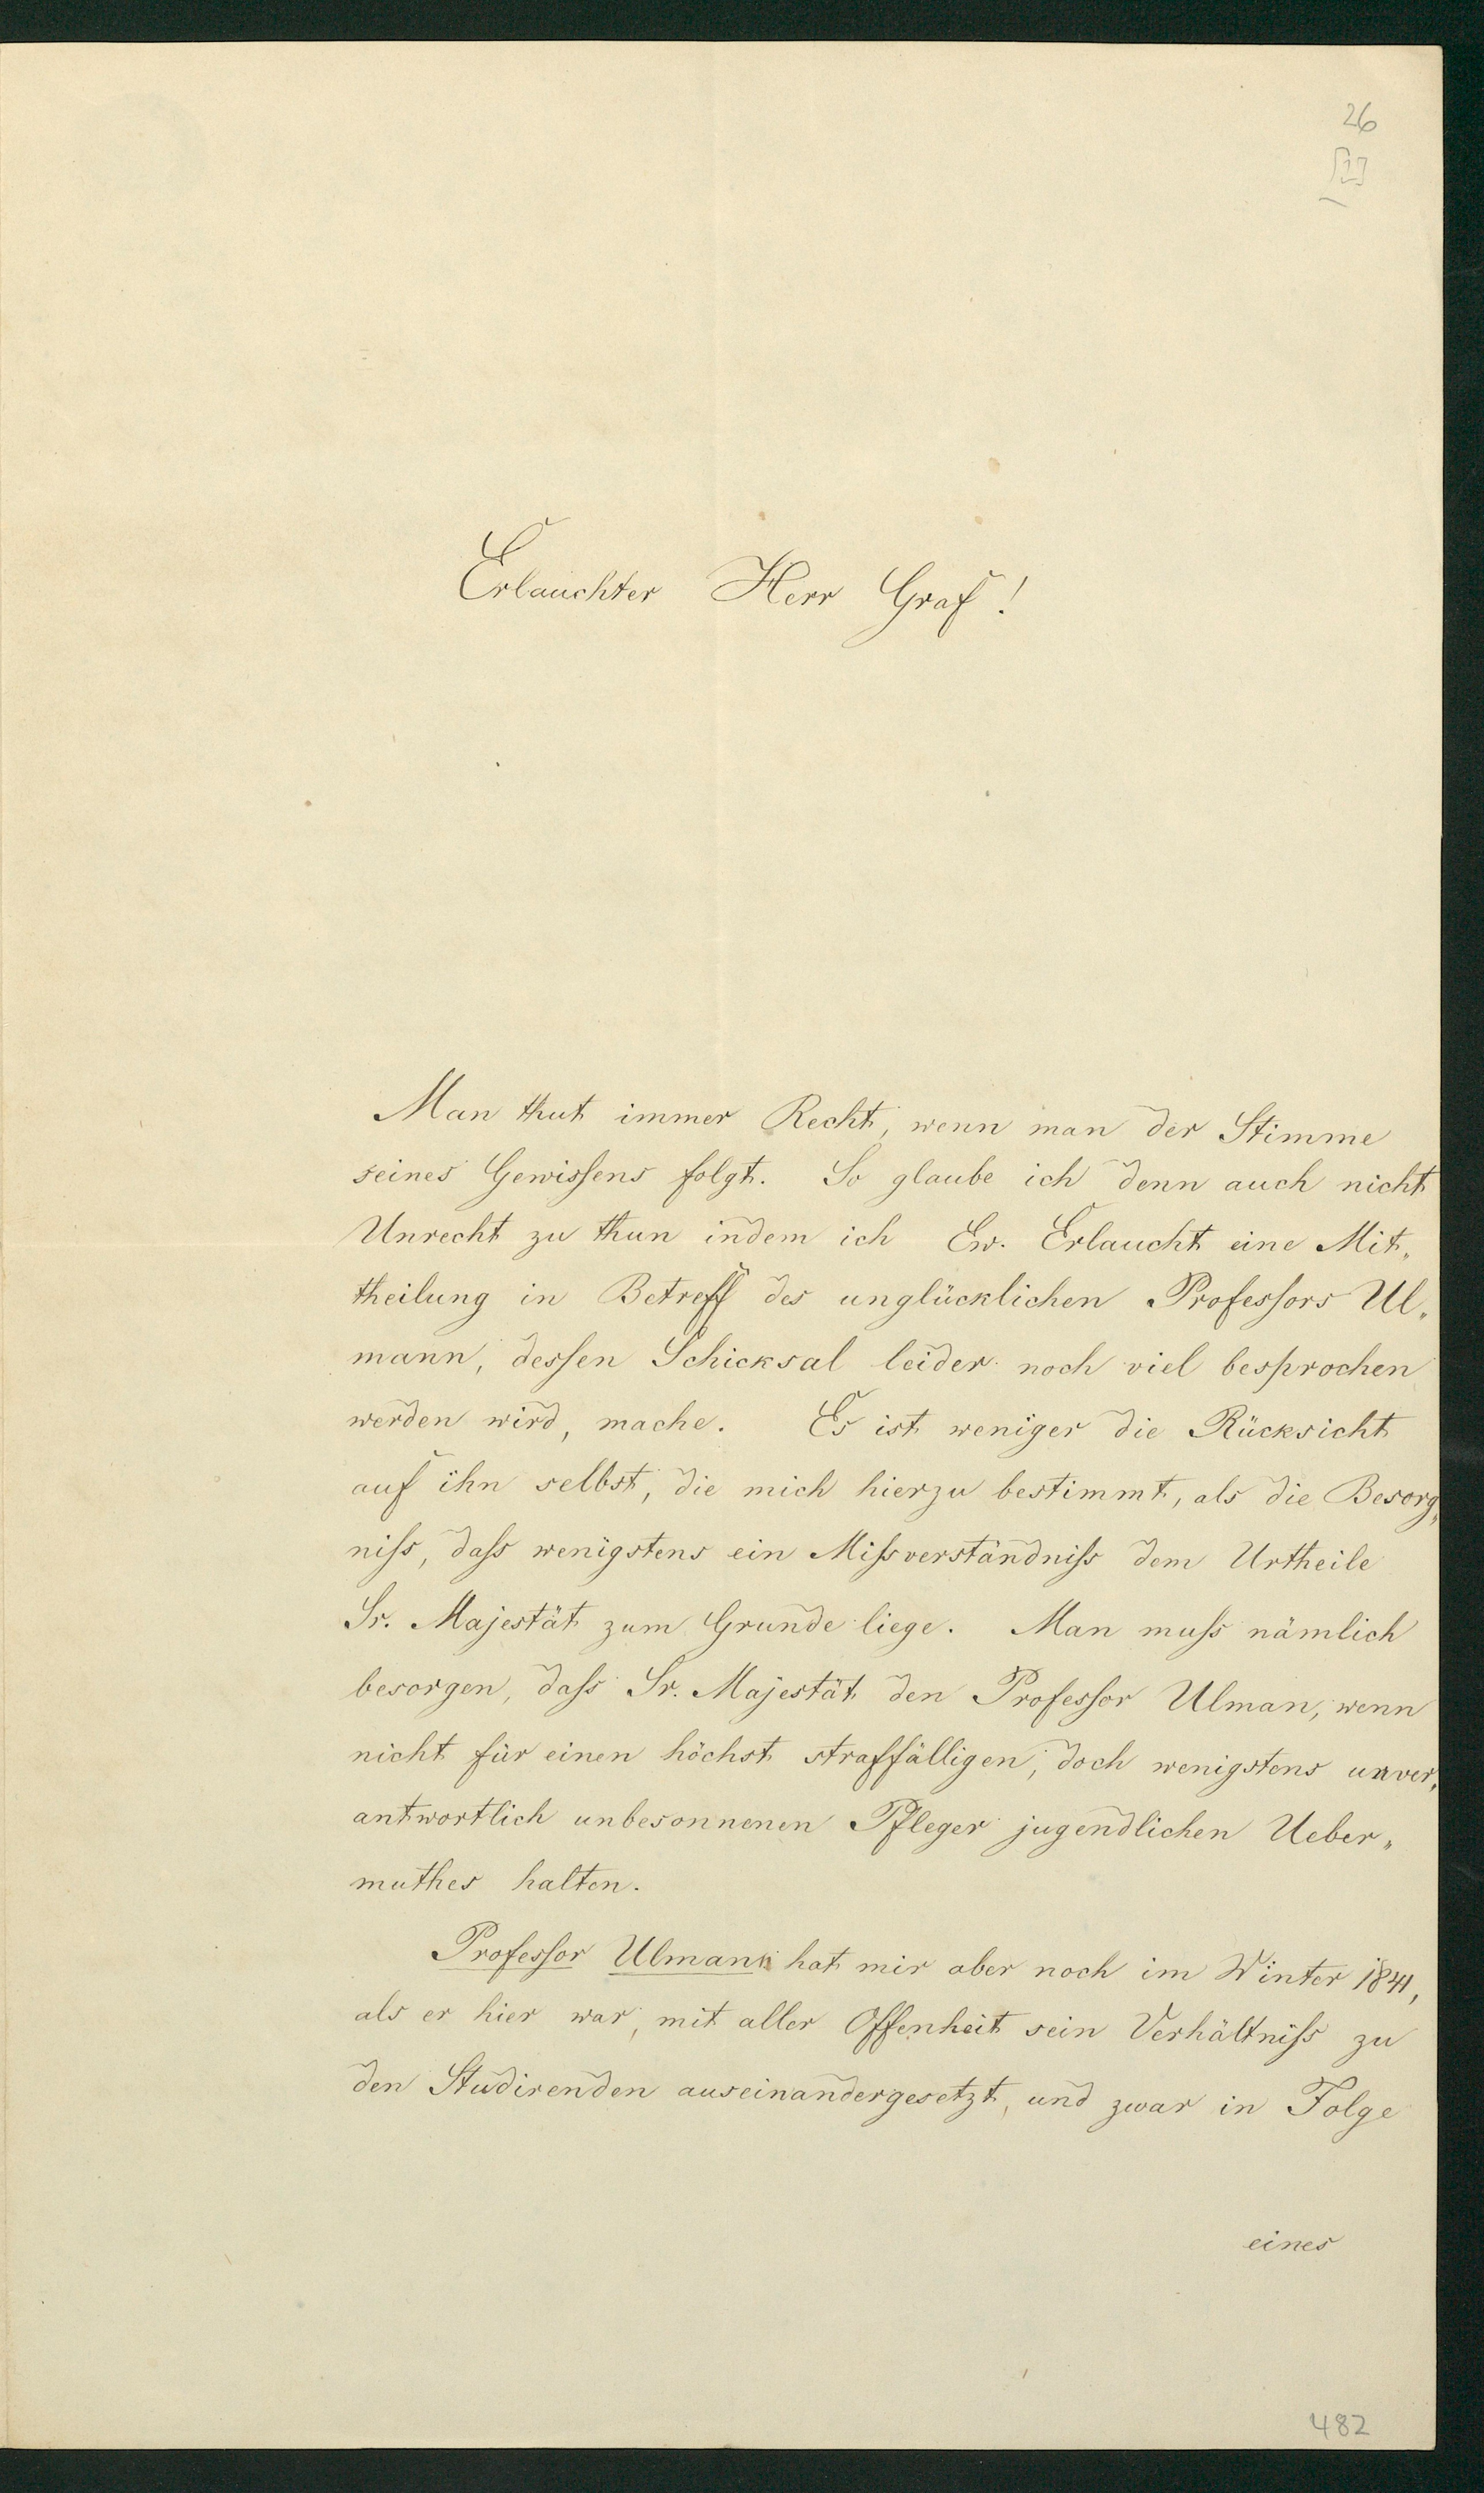 26
[1]
Erlauchter Herr Graf!
Man thut immer Recht, wenn man der Stimme
seines Gewissens folgt. So glaube ich denn auch nicht
Unrecht zu thun indem ich Ew. Erlaucht eine Mit„
theilung in Betreff des unglücklichen Professors Ul„
mann, dessen Schicksal leider noch viel besprochen
werden wird, mache. Es ist weniger die Rücksicht
auf ihn selbst, die mich hierzu bestimmt, als die Besorg„
niss, dass wenigstens ein Missverständniss dem Urtheile
Sr. Majestät zum Grunde liege. Man muss nämlich
besorgen, dass Sr. Majestät den Professor Ulman, wenn
nicht für einen höchst straffälligen, doch wenigstens unver„
antwortlich unbesonnenen Pfleger jugendlichen Ueber„
muthes halten.
Professor Ulmann hat mir aber noch im Winter 1841,
als er hier war, mit aller Offenheit sein Verhältniss zu
den Studirenden auseinandergesetzt, und zwar in Folge
eines
482